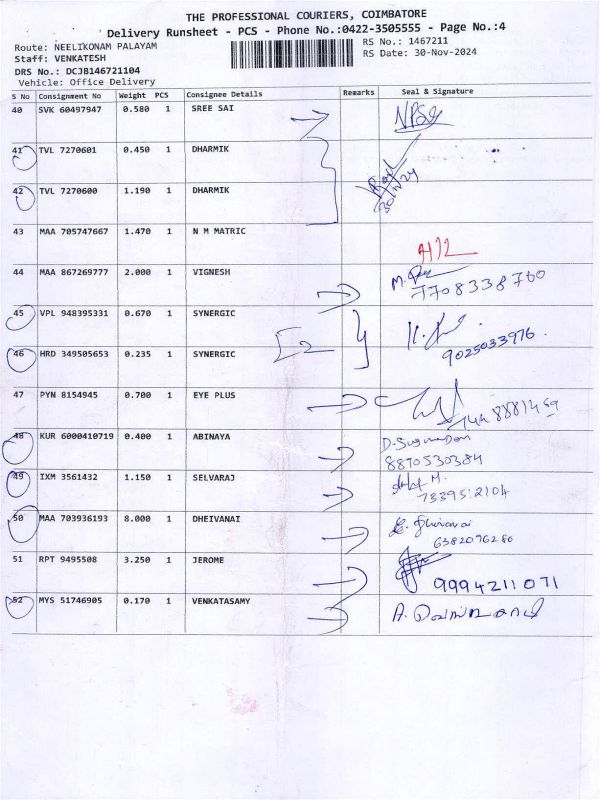 THE PROFESSIONAL COURIERS, COIMBATORE
Delivery Runsheet - PCS - Phone No.:0422-3505555 - Page No.:4
Route: NEELIKONAM PALAYAM
RS No.: 1467211
Staff: VENKATESH
RS Date: 30-Nov-2024
DRS No.: DCJB146721104
Vehicle: Office Delivery
S No Consignment No Weight PCS Consignee Details Remarks Seal & Signature
40 SVK 60497947 0.580 1 SREE SAI
41 TVL 7270601 0.450 1 DHARMIK
42 TVL 7270600 1.190 1 DHARMIK
30/11/24
43 MAA 705747667 1.470 1 N M MATRIC
44 MAA 867269777 2.000 1 VIGNESH
7708338760
45 VPL 948395331 0.670 1 SYNERGIC
46 HRD 349505653 0.235 1 SYNERGIC
9025033976
47 PYN 8154945 0.700 1 EYE PLUS
48 KUR 6000410719 0.400 1 ABINAYA
8870530384
49 IXM 3561432 1.150 1 SELVARAJ
50 MAA 703936193 8.000 1 DHEIVANAI
6382096280
51 RPT 9495508 3.250 1 JEROME
9994211071
52 MYS 51746905 0.170 1 VENKATASAMY